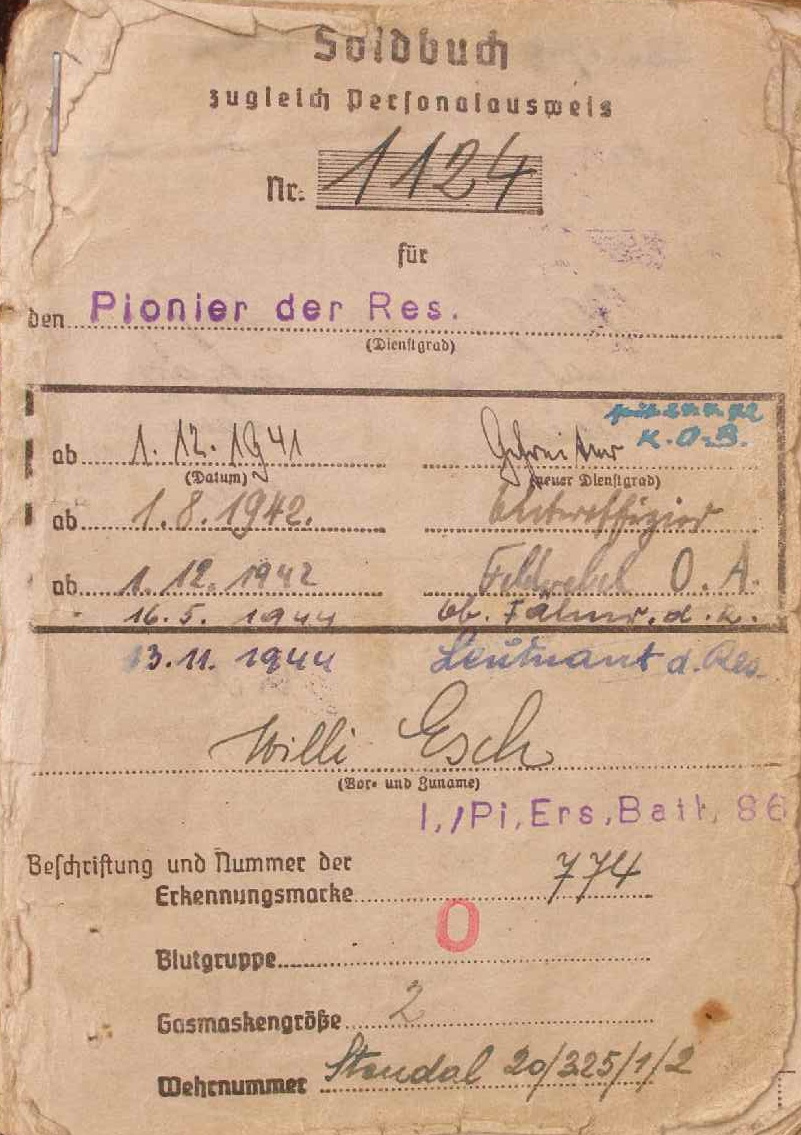 Soldbuch
zugleich Personalausweis
Nr. 1124
für
den Pionier der Res.
(Dienstgrad)
K.O.B.
ab 1.12.1941 Gefreiter
(Datum) (neuer Dienstgrad)
ab 1.8.1942. Unteroffizier
ab 1.12.1942 Feldwebel O.A.
16.5.1944 Ob. Fähnr. d. R.
13.11.1944 Leutnant d. Res.
Willi Esch
(Vor- und Zuname)
1./Pi,Ers,Batl, 86
Beschriftung und Nummer der
Erkennungsmarke 774
Blutgruppe O
Gasmaskengröße 2
Wehrnummer Stendal 20/325/1/2